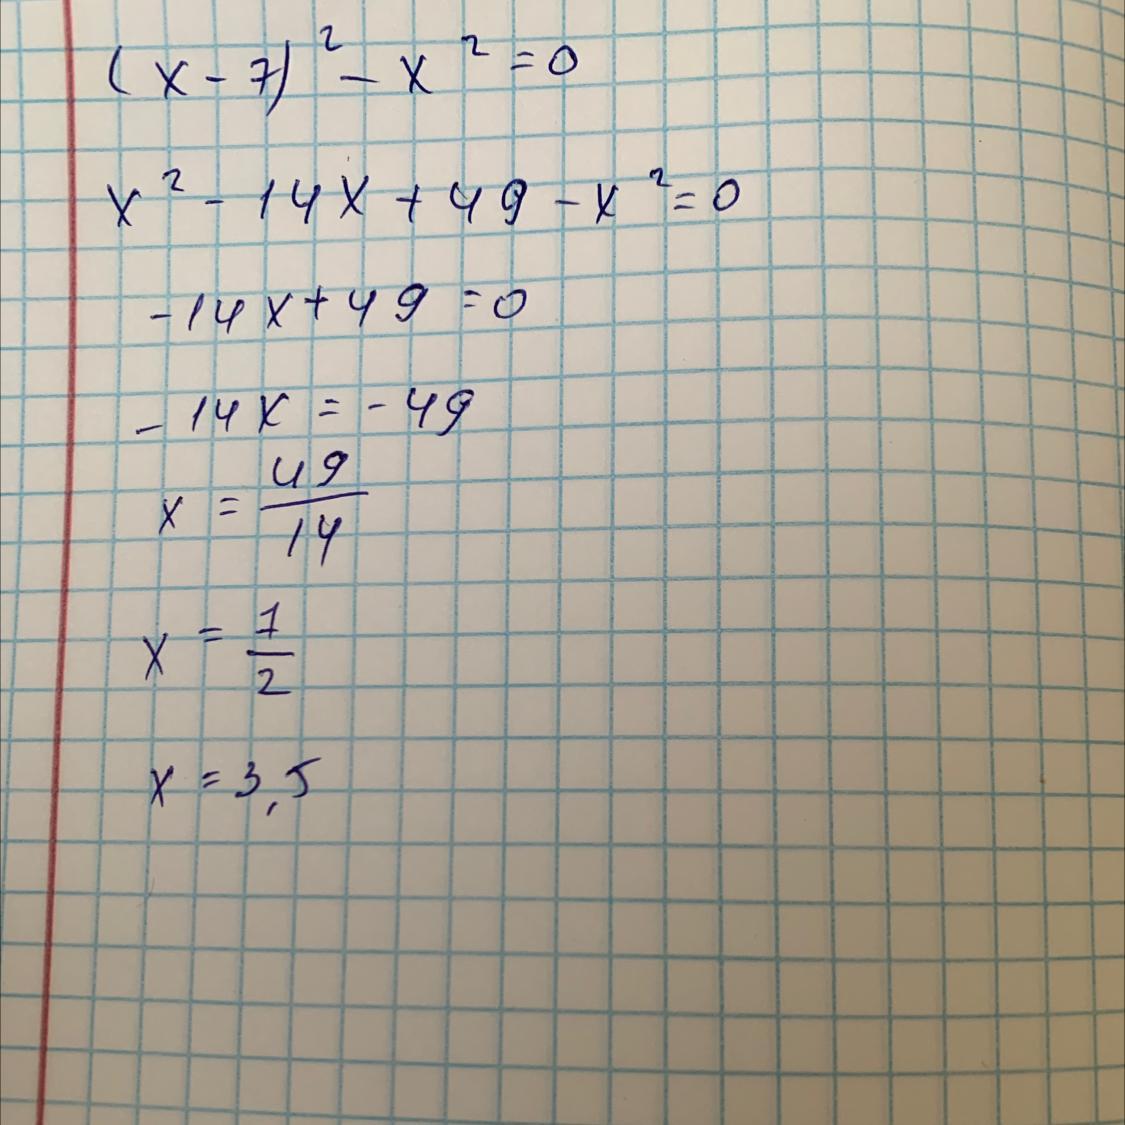 (x - 7)² - x² = 0
x² - 14x + 49 - x² = 0
-14x + 49 = 0
-14x = -49
x = 49/14
x = 7/2
x = 3,5